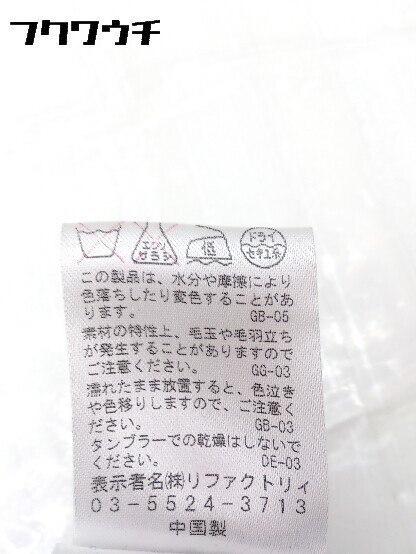 フクワウチ
エンソ
サラシ
低
ドライ
セキユ系
この製品は、水分や摩擦により
色落ちしたり変色することがあ
ります。 GB-05
素材の特性上、毛玉や毛羽立ち
が発生することがありますので
ご注意ください。 GG-03
濡れたまま放置すると、色泣き
や色移りしますので、ご注意く
ださい。 GB-03
タンブラーでの乾燥はしないで
ください。 DE-03
表示者名㈱リファクトリィ
03-5524-3713
中国製